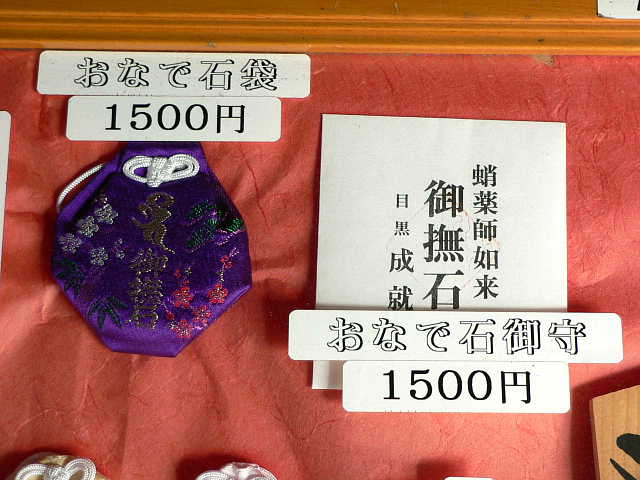 おなで石袋
1500円
御撫石
蛸薬師如来
御撫石
目黒成就
おなで石御守
1500円